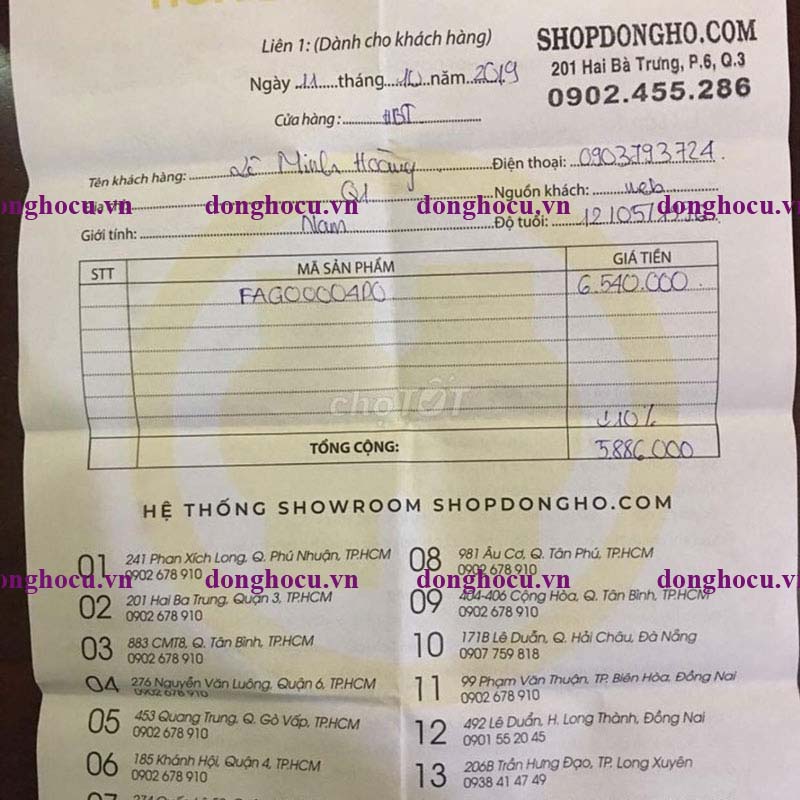 Liên 1: (Dành cho khách hàng)
SHOPDONGHO.COM
201 Hai Bà Trưng, P.6, Q.3
0902.455.286
Ngày 11 tháng 10 năm 2019
Cửa hàng: HBT
Tên khách hàng: Lê Minh Hoàng Điện thoại: 0903793724
Q1 Nguồn khách: web
donghocu.vn donghocu.vn donghocu.vn donghocu.vn
Giới tính: Nam Độ tuổi:
STT MÃ SẢN PHẨM GIÁ TIỀN
FAG00004D0 6.540.000
chợTỐT
10%
TỔNG CỘNG: 5886.000
HỆ THỐNG SHOWROOM SHOPDONGHO.COM
01 241 Phan Xích Long, Q. Phú Nhuận, TP.HCM
0902 678 910
02 201 Hai Ba Trung, Quận 3, TP.HCM
0902 678 910
03 883 CMT8, Q. Tân Bình, TP.HCM
0902 678 910
04 276 Nguyễn Văn Luông, Quận 6, TP.HCM
0902 678 910
05 453 Quang Trung, Q. Gò Vấp, TP.HCM
0902 678 910
06 185 Khánh Hội, Quận 4, TP.HCM
0902 678 910
07
08 981 Âu Cơ, Q. Tân Phú, TP.HCM
0902 678 910
donghocu.vn donghocu.vn donghocu.vn donghocu.vn
09 404-406 Cộng Hòa, Q. Tân Bình, TP.HCM
0902 678 910
10 171B Lê Duẩn, Q. Hải Châu, Đà Nẵng
0907 759 818
11 99 Phạm Văn Thuận, TP. Biên Hòa, Đồng Nai
0902 678 910
12 492 Lê Duẩn, H. Long Thành, Đồng Nai
0901 55 20 45
13 206B Trần Hưng Đạo, TP. Long Xuyên
0938 41 47 49